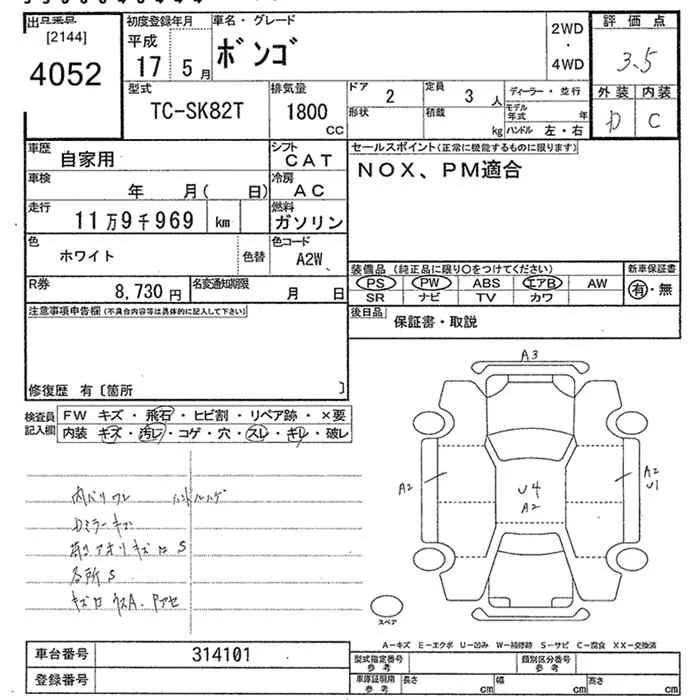 出品番号
[2144]
4052
初度登録年月
平成
17 5月
車名・グレード
ボンゴ
2WD
・
4WD
評価点
3.5
外装 内装
D C
型式
TC-SK82T
排気量
1800
CC
ドア
2
形状
定員
3人
積載
kg
ディーラー・並行
モデル年式 年
ハンドル 左・右
車歴
自家用
シフト
CAT
車検
年 月( 日)
冷房
AC
走行
11万9千969 km
燃料
ガソリン
色
ホワイト
色替
色コード
A2W
R券
8,730円
名変通知期限
月 日
セールスポイント(正常に機能するものに限ります)
NOX、PM適合
装備品(純正品に限り○をつけてください)
PS PW ABS エアB AW
SR ナビ TV カワ
新車保証書
有・無
後日品
保証書・取説
注意事項申告欄(不具合内容等は具体的に記入して下さい)
修復歴 有〔箇所 〕
検査員記入欄
FW キズ・飛石・ヒビ割・リペア跡・×要
内装 キズ・汚レ・コゲ・穴・スレ・キレ・破レ
内バリワレ ハンドルハゲ
Dミラーキズ
S
各所S
A3
A2
U4
A2
A2
U1
スペア
A-キズ E-エクボ U-凹み W-補修跡 S-サビ C-腐食 XX-交換済
車台番号 314101
登録番号
型式指定番号
参考
類別区分番号
参考
車庫証明用
参考
長さ cm
幅 cm
高さ cm